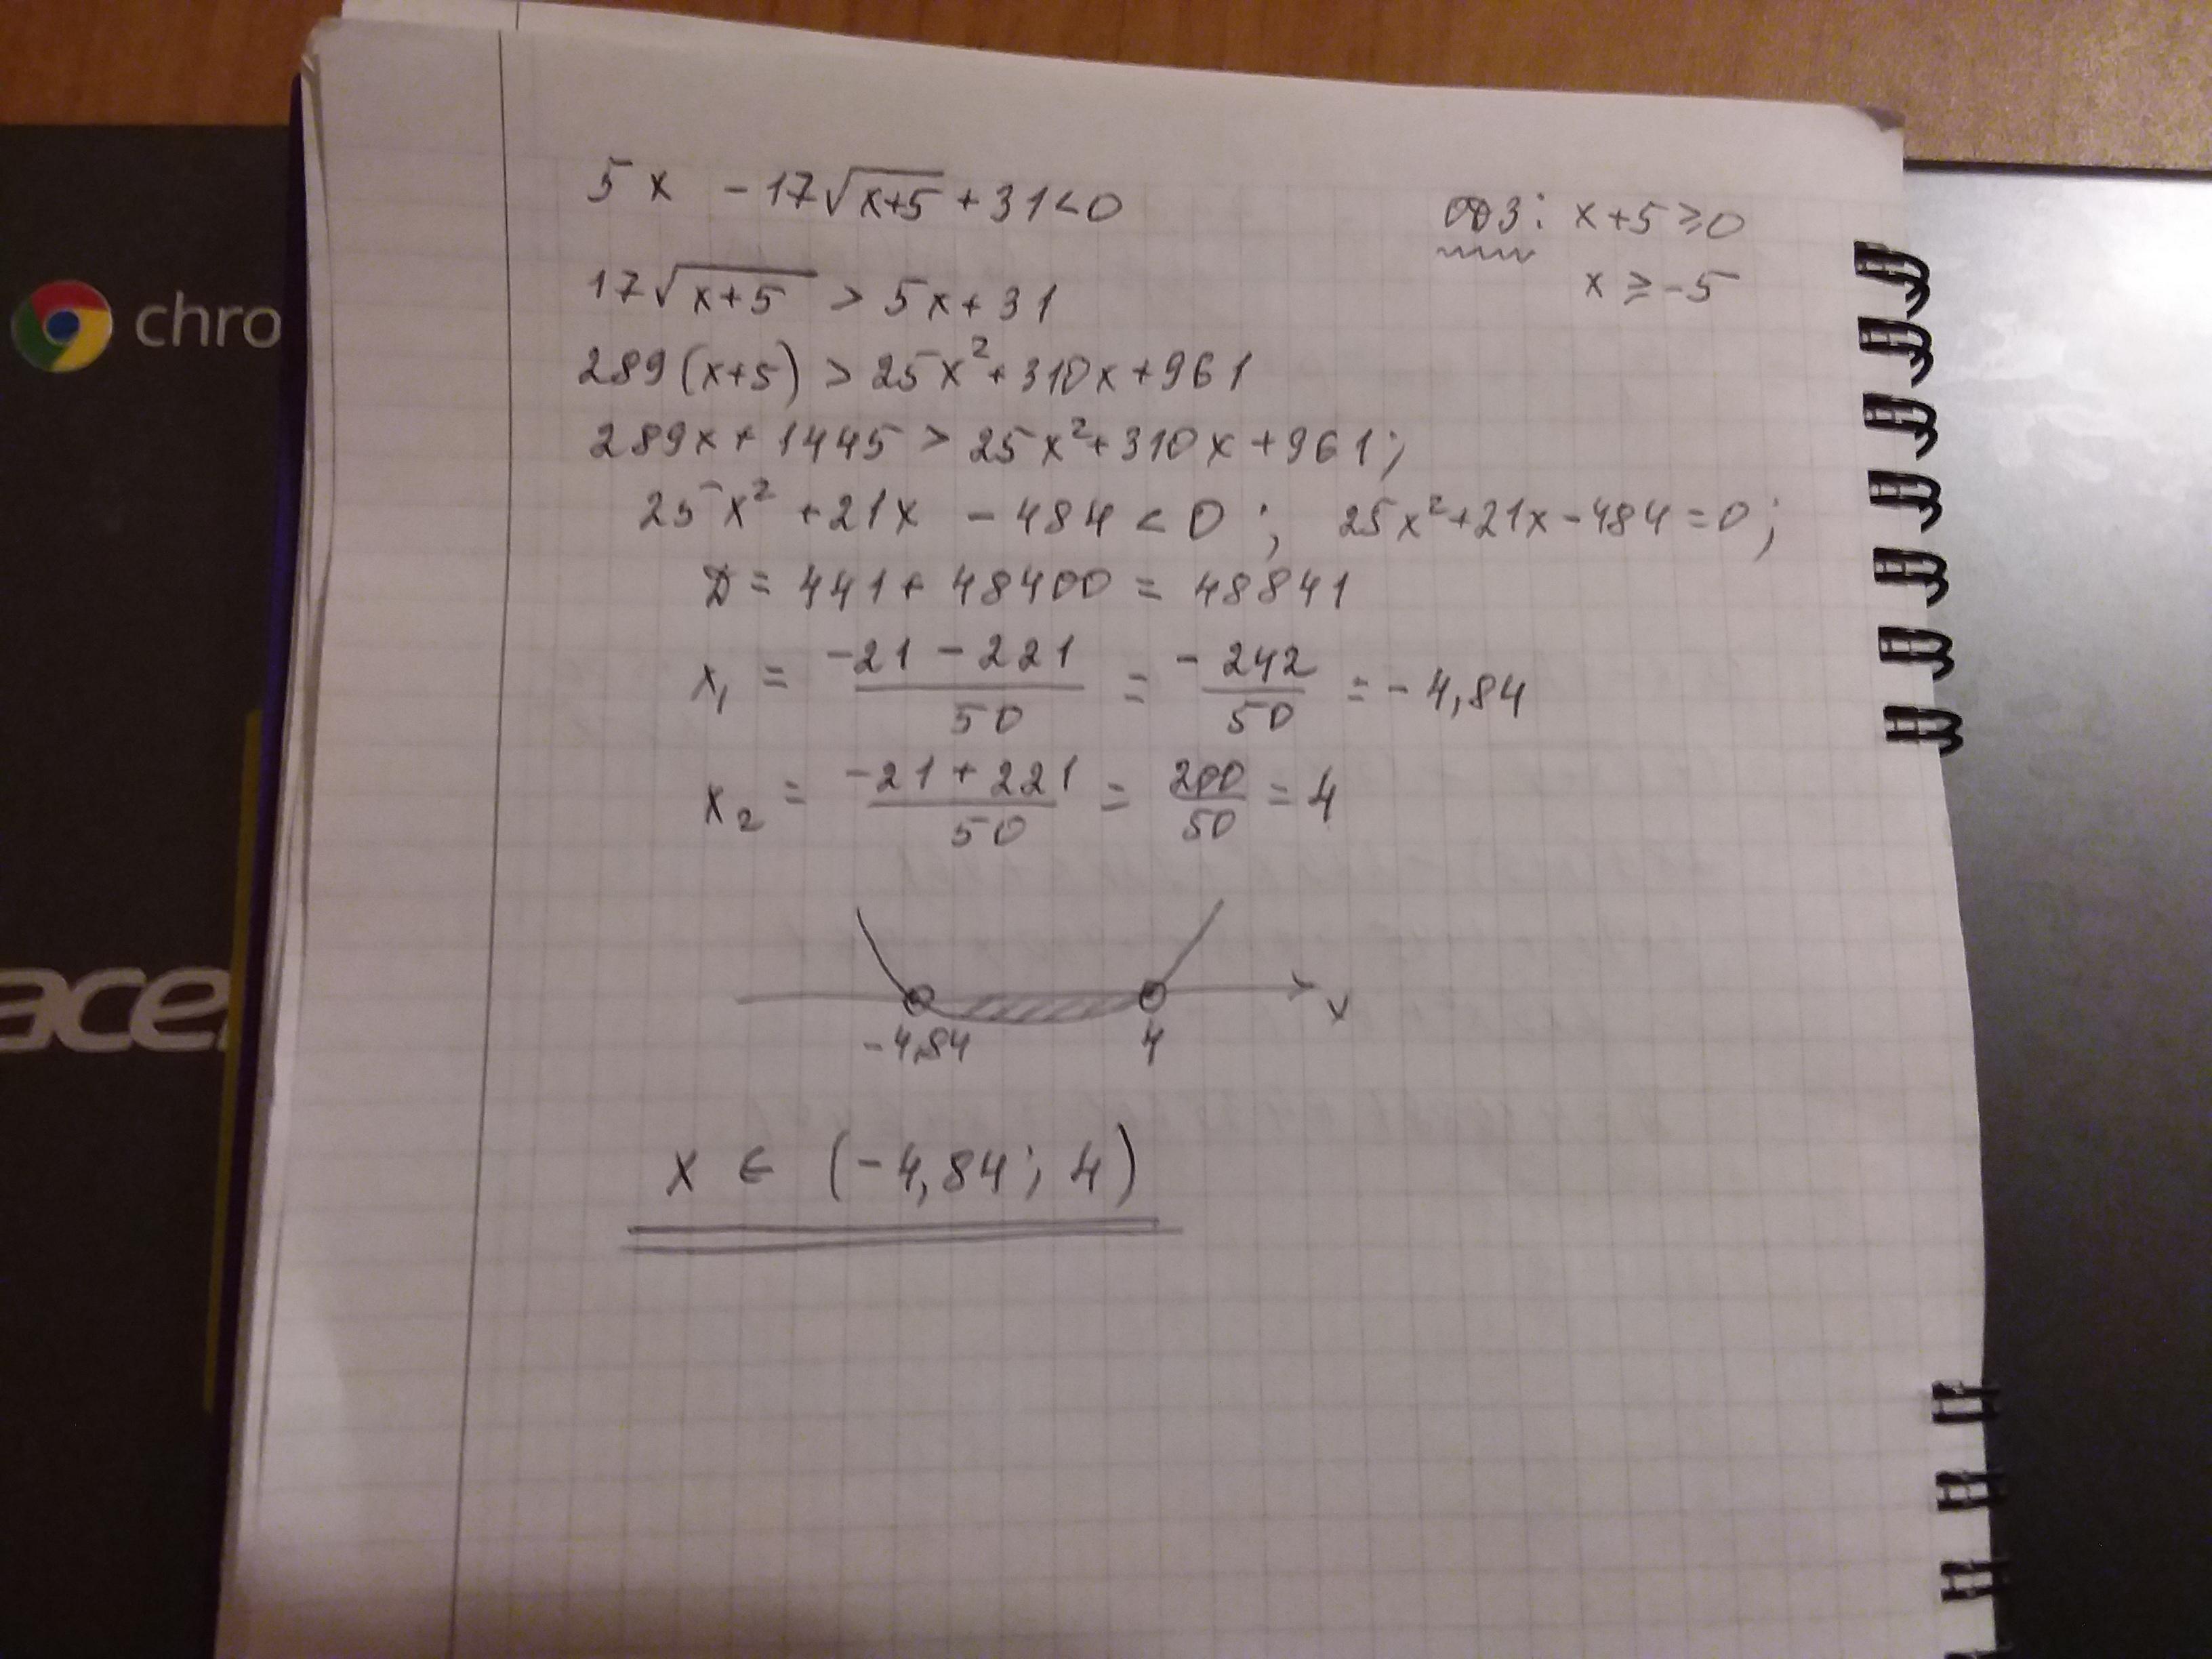 5x - 17√(x+5) + 31 < 0
ОДЗ: x+5 ≥ 0
x ≥ -5
17√(x+5) > 5x+31
289(x+5) > 25x²+310x+961
289x+1445 > 25x²+310x+961;
25x² +21x - 484 < 0; 25x²+21x-484=0;
D = 441+48400 = 48841
x₁ = (-21-221)/50 = -242/50 = -4,84
x₂ = (-21+221)/50 = 200/50 = 4
-4,84 4 x
x ∈ (-4,84; 4)
chro
ace